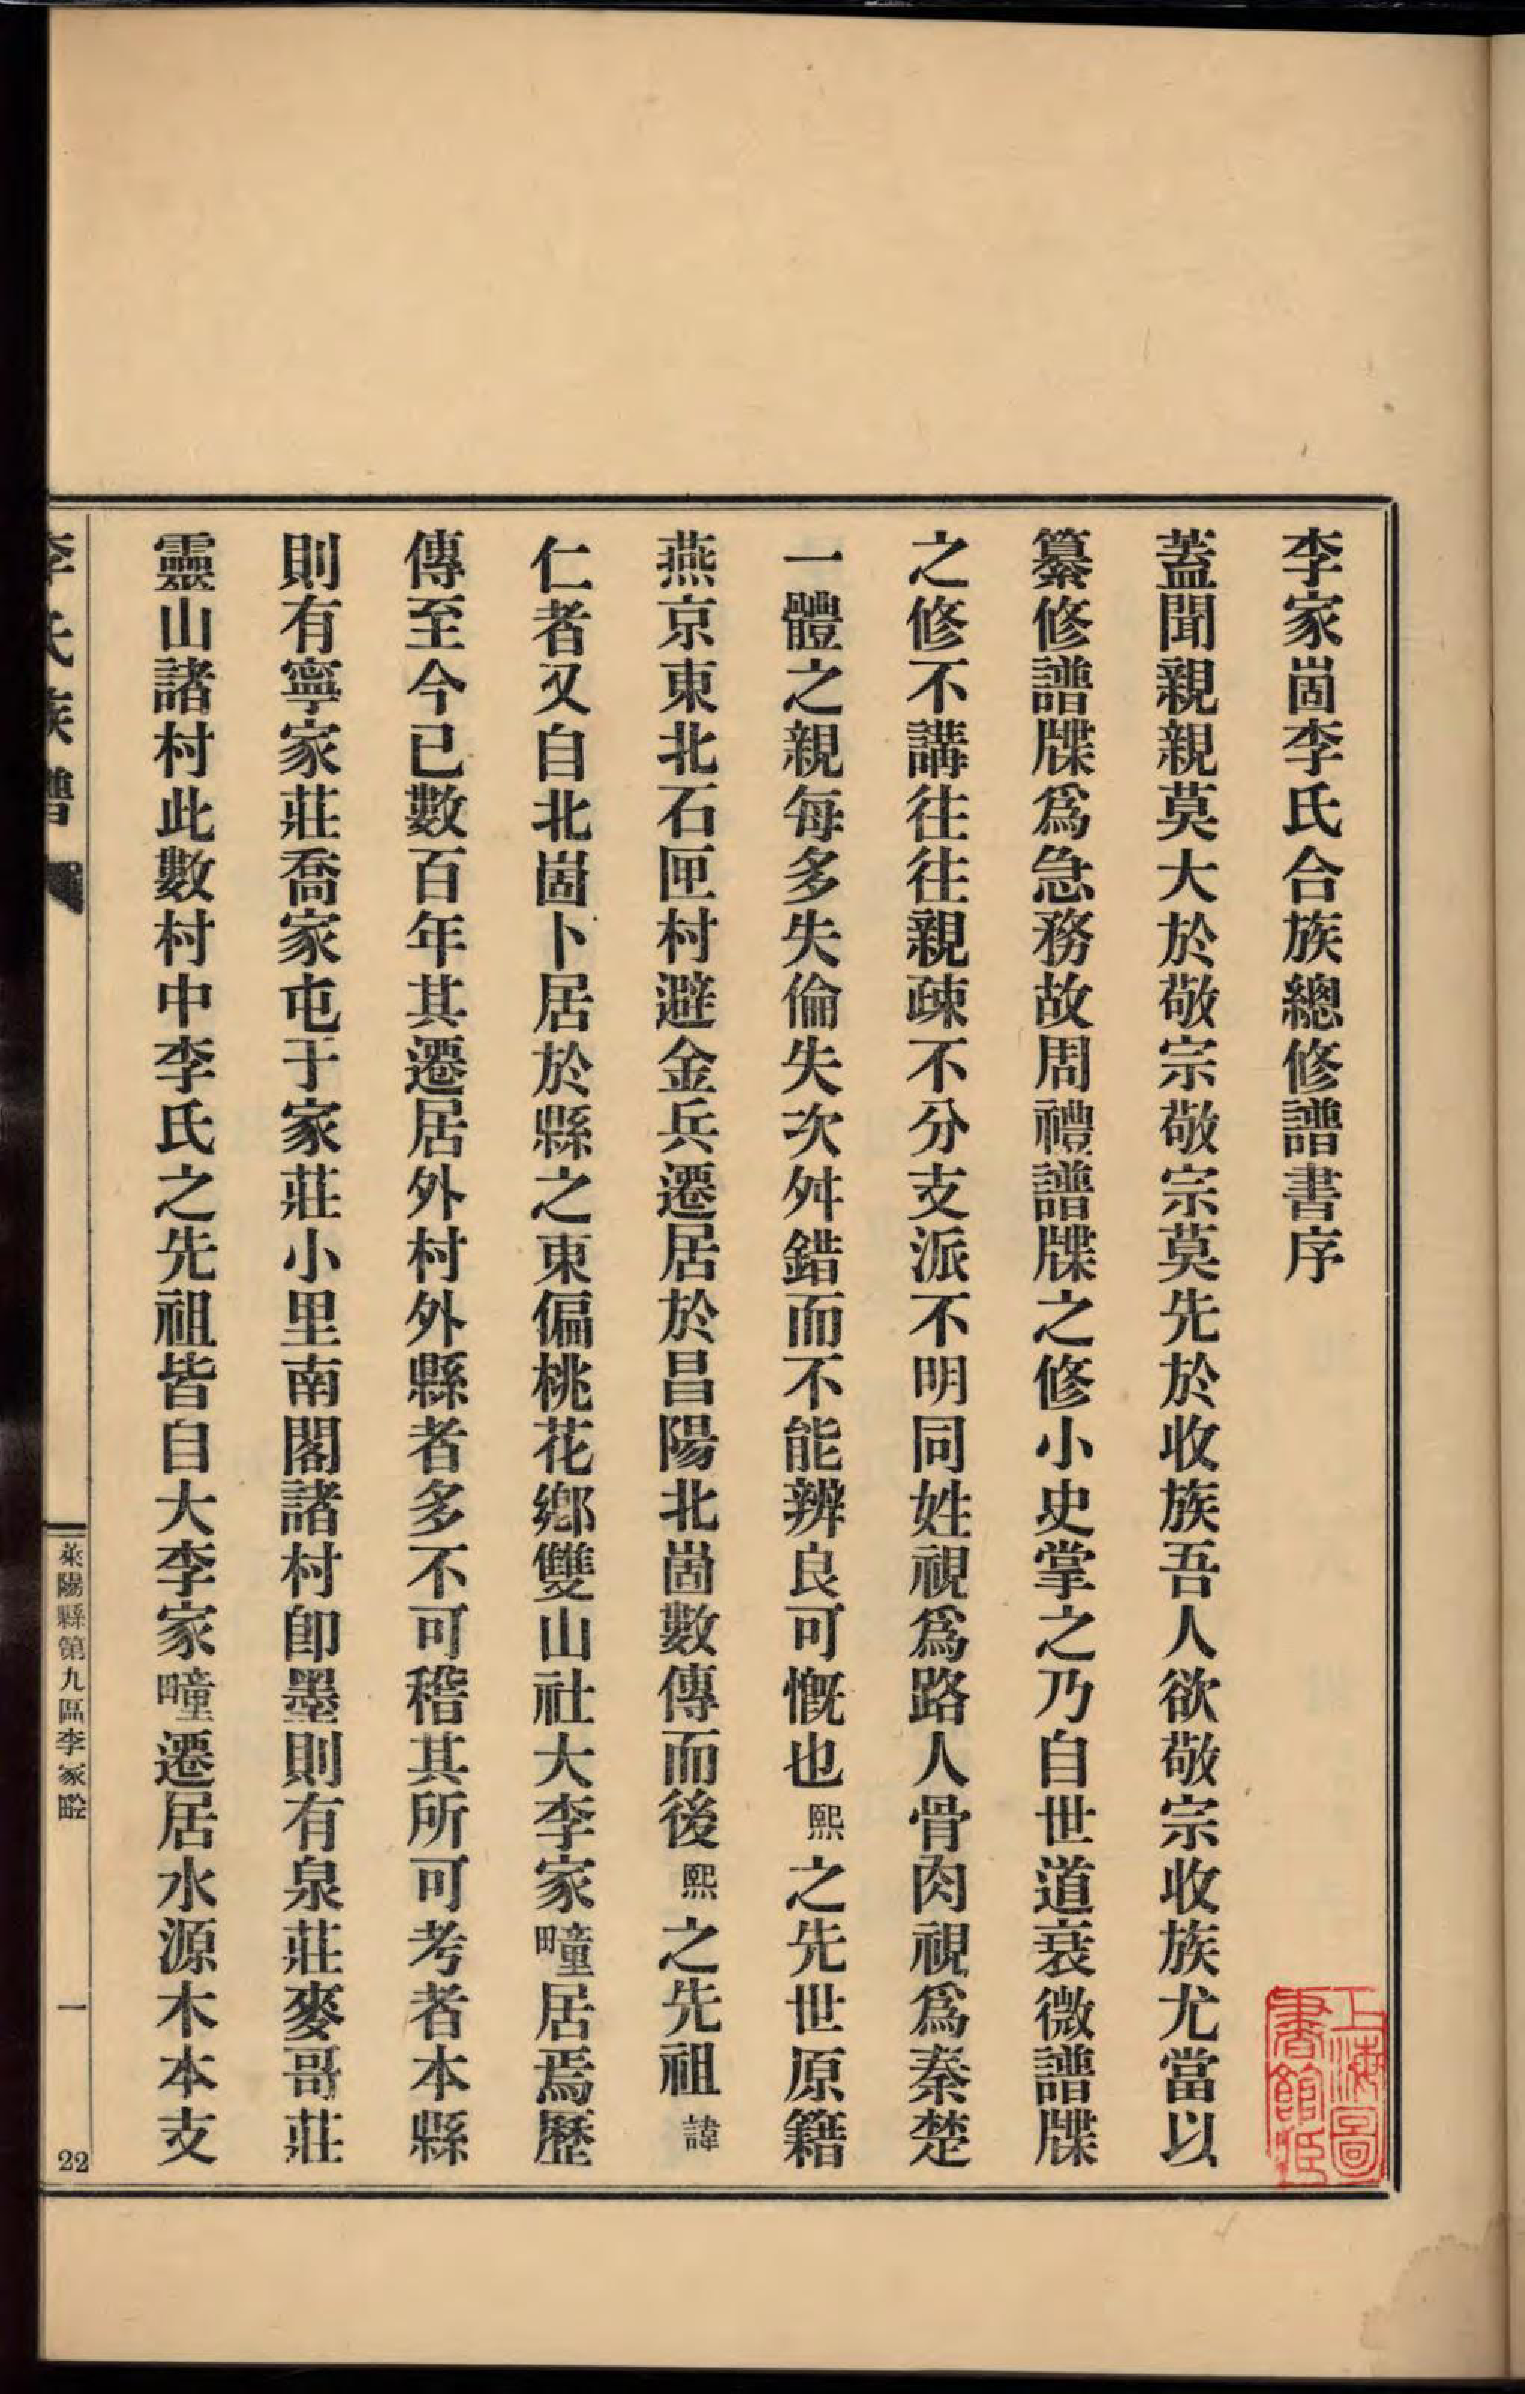 李家崮李氏合族總修譜書序
蓋聞親親莫大於敬宗敬宗莫先於收族吾人欲敬宗收族尤當以
纂修譜牒爲急務故周禮譜牒之修小史掌之乃自世道衰微譜牒
之修不講往往親疎不分支派不明同姓視爲路人骨肉視爲秦楚
一體之親每多失倫失次舛錯而不能辨良可慨也熙之先世原籍
燕京東北石匣村避金兵遷居於昌陽北崮數傳而後熙之先祖諱
仁者又自北崮卜居於縣之東偏桃花鄉雙山社大李家疃居焉歷
傳至今已數百年其遷居外村外縣者多不可稽其所可考者本縣
則有寧家莊喬家屯于家莊小里南閣諸村卽墨則有泉莊麥哥莊
靈山諸村此數村中李氏之先祖皆自大李家疃遷居水源木本支
李氏族譜
萊陽縣第九區李家疃
一
22
上海圖書館藏